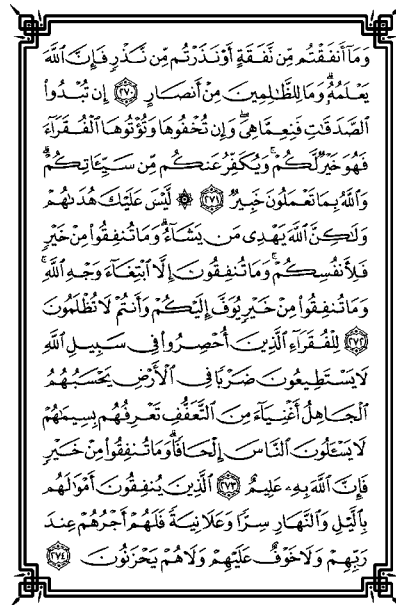 وَمَآ أَنفَقْتُم مِّن نَّفَقَةٍ أَوْ نَذَرْتُم مِّن نَّذْرٍ فَإِنَّ ٱللَّهَ
يَعْلَمُهُۥ ۗ وَمَا لِلظَّـٰلِمِينَ مِنْ أَنصَارٍ ٢٧٠ إِن تُبْدُوا۟
ٱلصَّدَقَـٰتِ فَنِعِمَّا هِىَ ۖ وَإِن تُخْفُوهَا وَتُؤْتُوهَا ٱلْفُقَرَآءَ
فَهُوَ خَيْرٌ لَّكُمْ ۚ وَيُكَفِّرُ عَنكُم مِّن سَيِّـَٔاتِكُمْ ۗ
وَٱللَّهُ بِمَا تَعْمَلُونَ خَبِيرٌ ٢٧١ ۞ لَّيْسَ عَلَيْكَ هُدَىٰهُمْ
وَلَـٰكِنَّ ٱللَّهَ يَهْدِى مَن يَشَآءُ ۗ وَمَا تُنفِقُوا۟ مِنْ خَيْرٍ
فَلِأَنفُسِكُمْ ۚ وَمَا تُنفِقُونَ إِلَّا ٱبْتِغَآءَ وَجْهِ ٱللَّهِ ۚ
وَمَا تُنفِقُوا۟ مِنْ خَيْرٍ يُوَفَّ إِلَيْكُمْ وَأَنتُمْ لَا تُظْلَمُونَ
٢٧٢ لِلْفُقَرَآءِ ٱلَّذِينَ أُحْصِرُوا۟ فِى سَبِيلِ ٱللَّهِ
لَا يَسْتَطِيعُونَ ضَرْبًا فِى ٱلْأَرْضِ يَحْسَبُهُمُ
ٱلْجَاهِلُ أَغْنِيَآءَ مِنَ ٱلتَّعَفُّفِ تَعْرِفُهُم بِسِيمَـٰهُمْ
لَا يَسْـَٔلُونَ ٱلنَّاسَ إِلْحَافًا ۗ وَمَا تُنفِقُوا۟ مِنْ خَيْرٍ
فَإِنَّ ٱللَّهَ بِهِۦ عَلِيمٌ ٢٧٣ ٱلَّذِينَ يُنفِقُونَ أَمْوَٰلَهُم
بِٱلَّيْلِ وَٱلنَّهَارِ سِرًّا وَعَلَانِيَةً فَلَهُمْ أَجْرُهُمْ عِندَ
رَبِّهِمْ وَلَا خَوْفٌ عَلَيْهِمْ وَلَا هُمْ يَحْزَنُونَ ٢٧٤